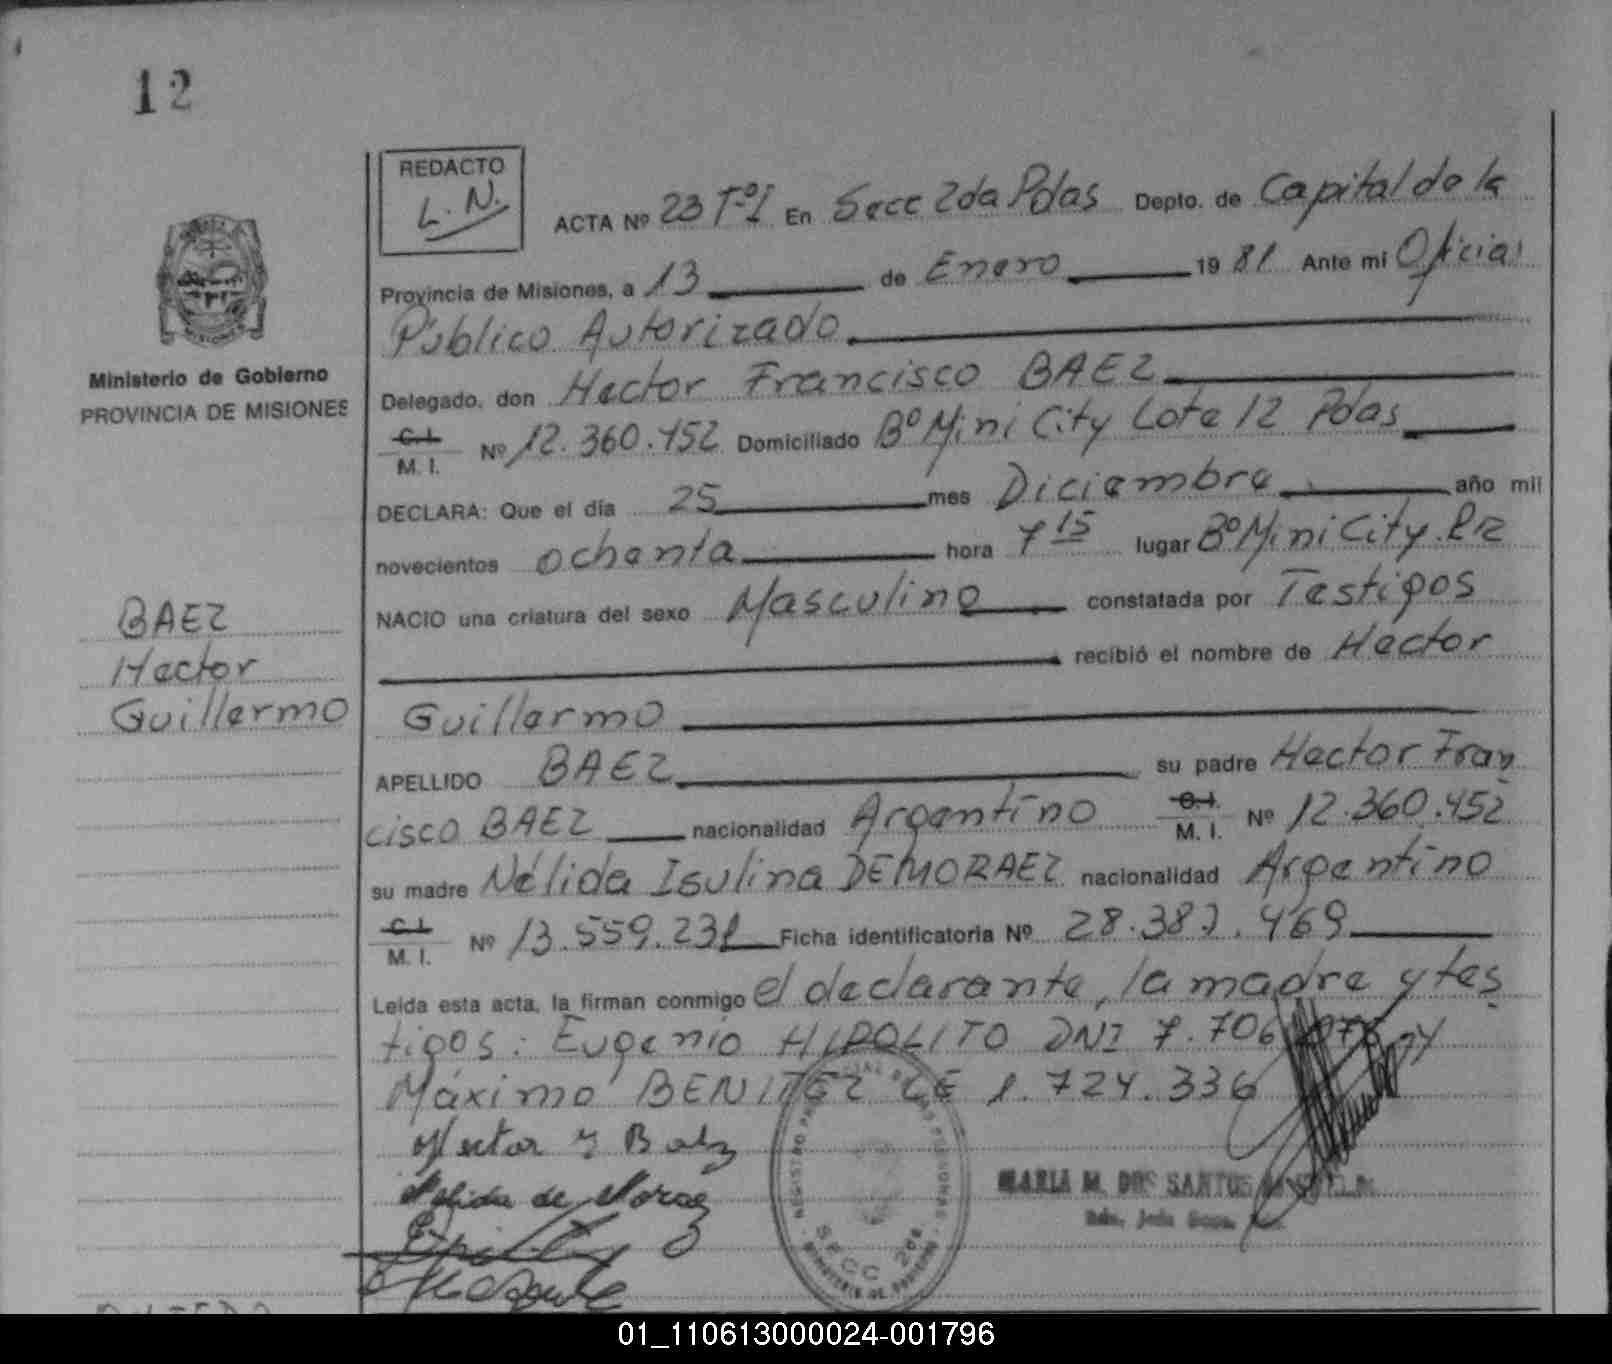 12
REDACTO
L. N.
ACTA Nº 23 Tº I En Secc 2da Pdas Depto. de Capital de la
Provincia de Misiones, a 13 de Enero 19 81 Ante mi Oficial
Público Autorizado
Delegado, don Hector Francisco BAEZ
C. I.
M. I. Nº 12.360.452 Domiciliado Bº Mini City Lote 12 Pdas
DECLARA: Que el día 25 mes Diciembre año mil
novecientos ochenta hora 7 15 lugar Bº Mini City
NACIO una criatura del sexo Masculino constatada por Testigos
recibió el nombre de Hector
Guillermo
APELLIDO BAEZ su padre Hector Fran
cisco BAEZ nacionalidad Argentino C. I. M. I. Nº 12.360.452
su madre Nélida Isulina DEMORAEZ nacionalidad Argentino
C. I.
M. I. Nº 13.559.231 Ficha identificatoria Nº 28.387.469
Leída esta acta, la firman conmigo el declarante, la madre y tes
tigos: Eugenio HIPOLITO DNI 7.706 y
Máximo BENITEZ CE 1.724.336
Hector Baez
Nelida de Moraez
MARIA M. DOS SANTOS
SECC 2da
Ministerio de Gobierno
PROVINCIA DE MISIONES
BAEZ
Hector
Guillermo
01_110613000024-001796